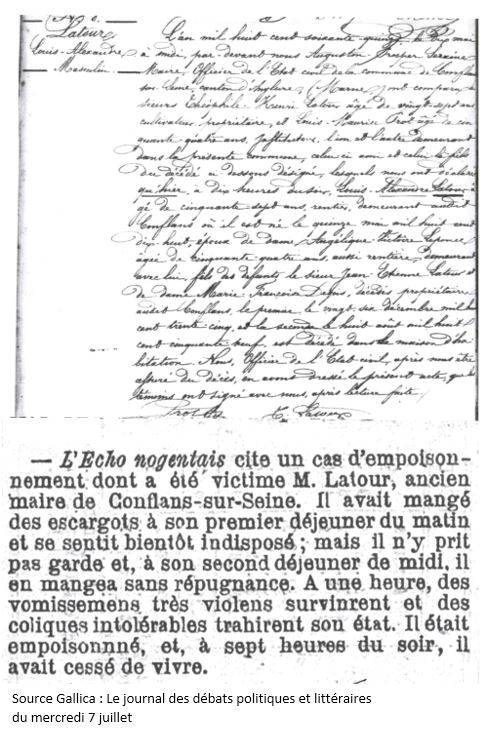 Latour
Louis-Alexandre
Masculin
L'an mil huit cent soixante quinze, le
à midi, par devant nous Auguste Prosper
Maire, Officier de l'Etat civil de la commune de Conflans
sur Seine, canton d'Anglure, (Marne) ont comparu
sieurs Théophile Henri Latour, âgé de vingt sept ans
cultivateur propriétaire, et Louis Maurice Prot âgé de cin
quante quatre ans, l'un et l'autre demeurant
dans la présente commune, celui ci ami et celui là fils
du décédé ci dessous désigné, lesquels nous ont déclaré
qu'hier, à dix heures du soir, Louis-Alexandre Latour, â
gé de cinquante sept ans, rentier, demeurant audit
Conflans où il est né le quinze mai mil huit cent
dix huit, époux de dame Angélique Victoire
âgée de cinquante quatre ans, aussi rentière, demeurant
avec lui, fils des défunts le sieur Jean Etienne Latour et
de dame Marie Françoise, décédés propriétaires
audit Conflans, le premier le vingt six décembre mil huit
cent trente cinq, et la seconde le huit août mil huit
cent cinquante neuf, est décédé dans sa maison d'ha
bitation. Nous, Officier de l'Etat civil, après nous être
assuré du décès, en avons dressé le présent acte, que les
témoins ont signé avec nous, après lecture faite.
Prot
— L'Echo nogentais cite un cas d'empoison-
nement dont a été victime M. Latour, ancien
maire de Conflans-sur-Seine. Il avait mangé
des escargots à son premier déjeuner du matin
et se sentit bientôt indisposé ; mais il n'y prit
pas garde et, à son second déjeuner de midi, il
en mangea sans répugnance. A une heure, des
vomissemens très violens survinrent et des
coliques intolérables trahirent son état. Il était
empoisonnné, et, à sept heures du soir, il
avait cessé de vivre.
Source Gallica : Le journal des débats politiques et littéraires
du mercredi 7 juillet